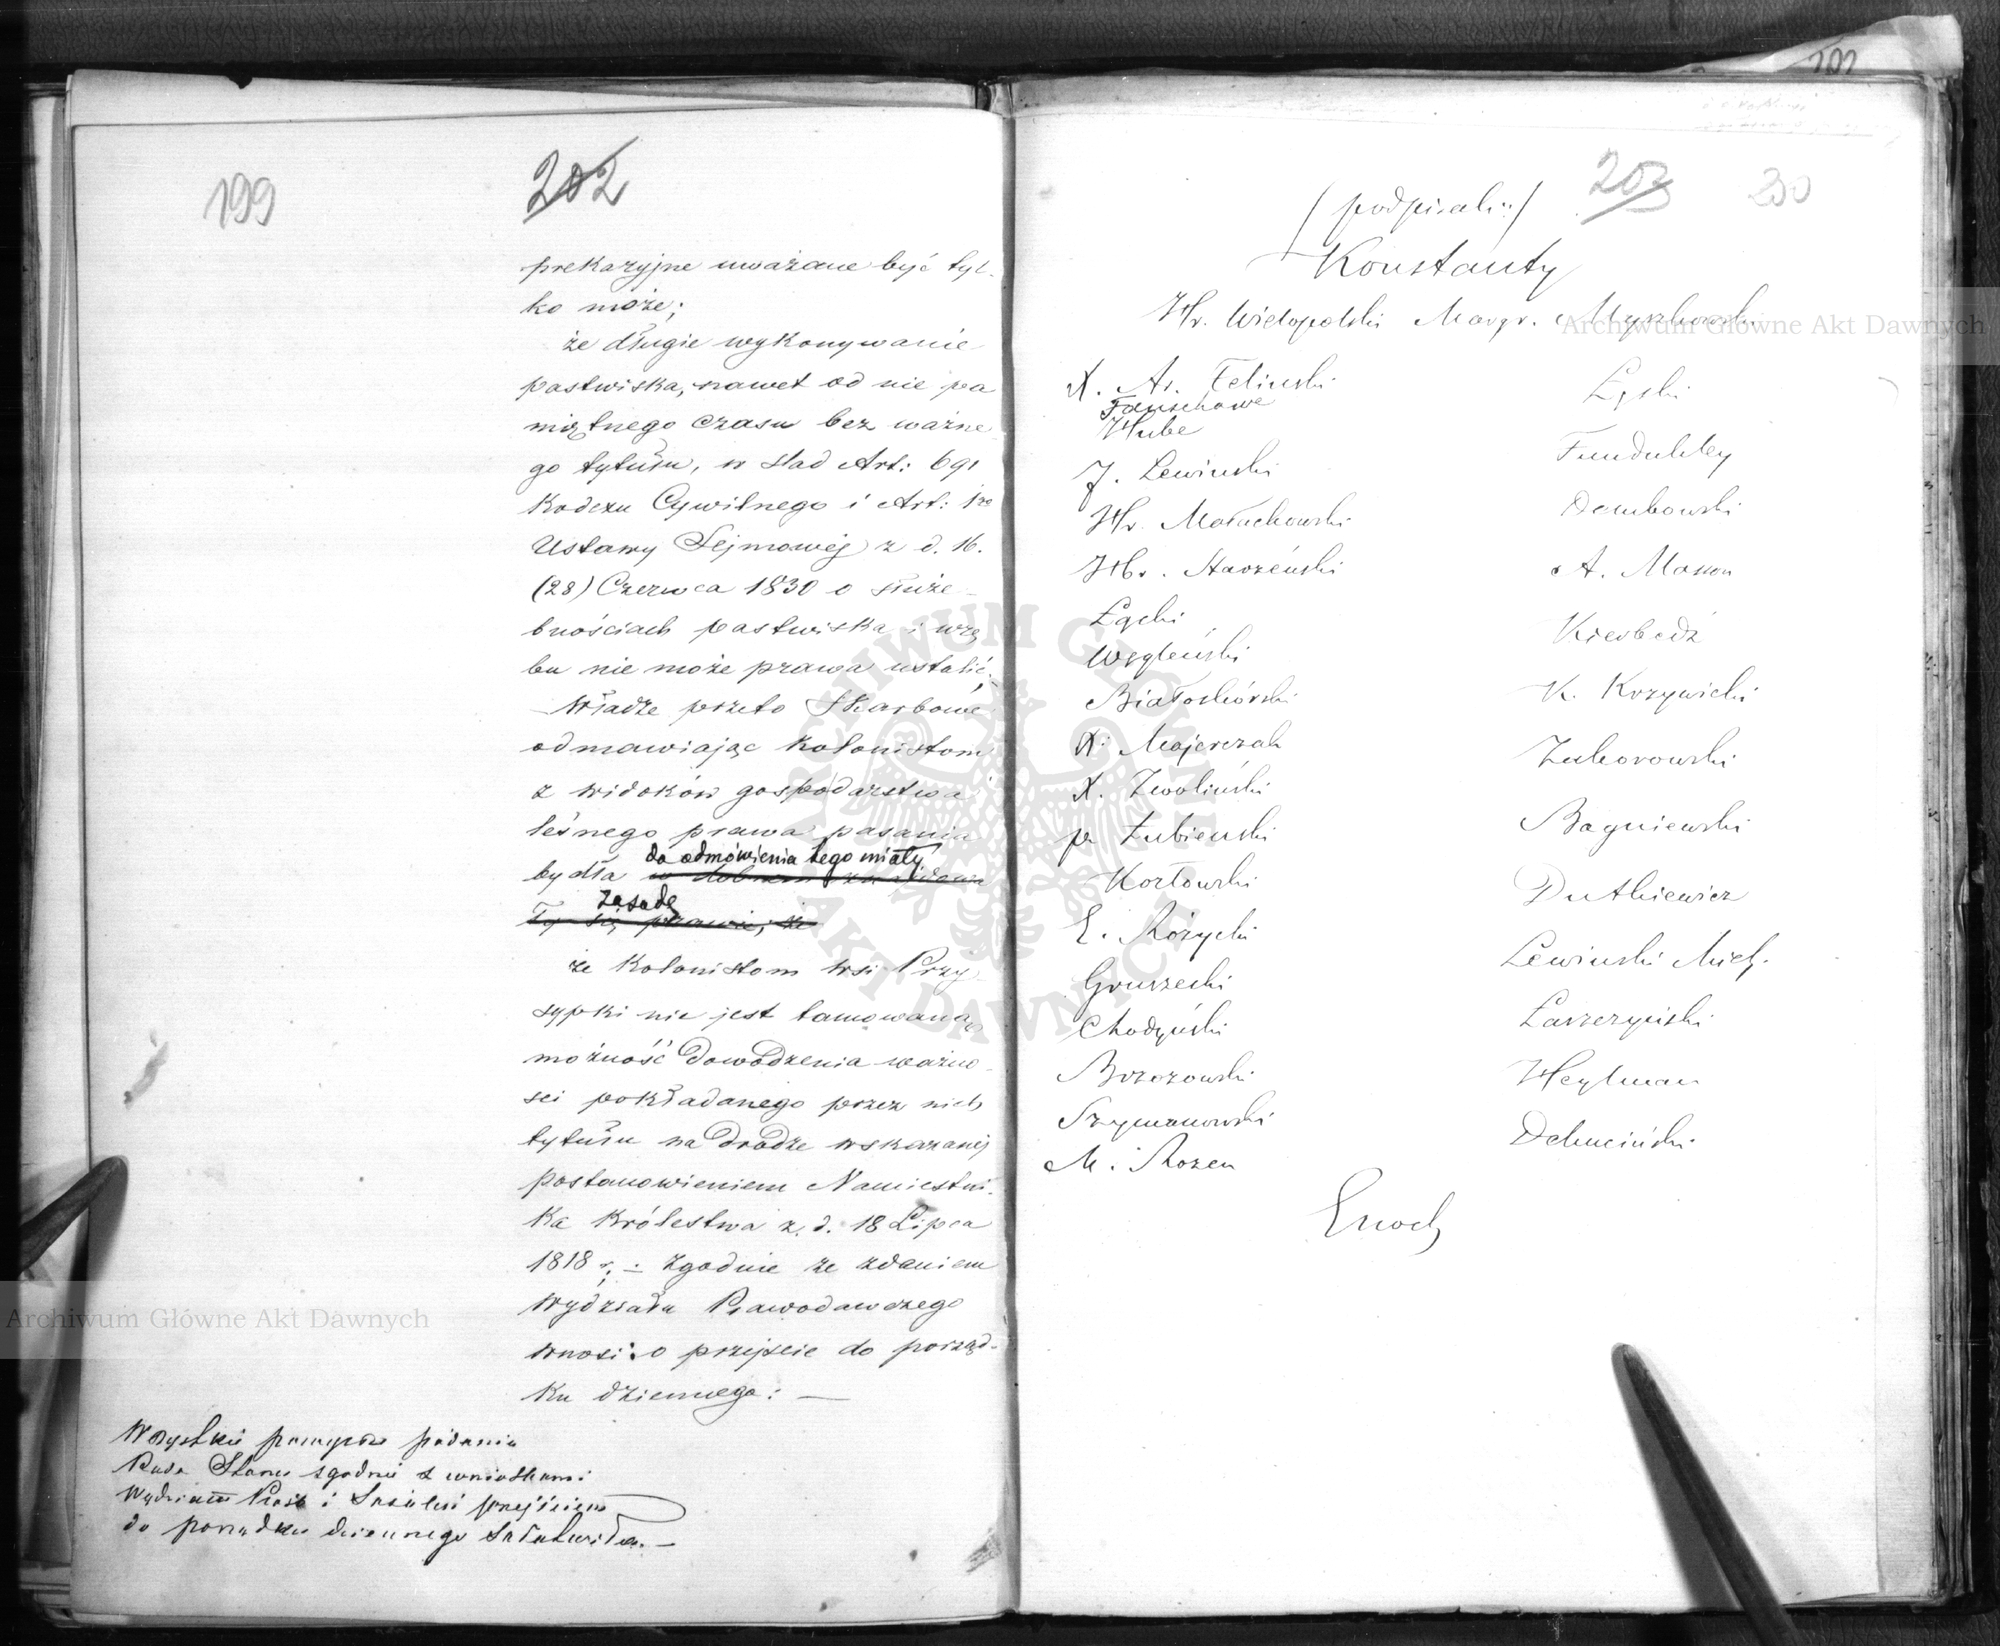 199
202
prekaryjne uważane być tyl-
ko może;
że długie wykonywanie
pastwiska, nawet od nie pa
miętnego czasu bez ważne
go tytułu, w ślad Art: 691
Kodexu Cywilnego i Art: 1go
Ustawy Sejmowej z d. 16.
(28) Czerwca 1830 o służe-
bnościach pastwiska i wrę
bu nie może prawa ustalić;
Władze przeto Skarbowe
odmawiając kolonistom
z widoków gospodarstwa
leśnego prawa pasania
do odmówienia tego miały
bydła
zasadę
że kolonistom wsi Przy-
sypki nie jest tamowaną
możność dowodzenia ważno-
sci pokładanego przez nich
tytułu na drodze wskazanej
postanowieniem Namiestni-
ka Królestwa z. d. 18 Lipca
1818 r; – zgodnie ze zdaniem
Wydziału Prawodawczego
wnosi: o przejście do porząd-
ku dziennego: —
Wszystkie powyższe podania
Rada Stanu zgodnie z wnioskami
Wydziału Próśb i Zażaleń przejściem
do porządku dziennego załatwiła. —
202
203
200
(podpisali:)
Konstanty
Hr. Wielopolski Margr. Myszkowski
X. Ar. Feliński
Fanschawe
Hube
J. Lewiński
Hr. Małachowski
Hr. Starzeński
Łącki
Węgleński
Białoskórski
X: Majerczak
X. Zwoliński
p. Łubieński
Kozłowski
E. Różycki
Gruszecki
Chodyński
Brzozowski
Szymanowski
M. Rozen
Łęski
Fundukley
Dembowski
A. Masson
Kierbedź
K. Krzywicki
Zaborowski
Bagniewski
Dutkiewicz
Lewiński Mich.
Laszczyński
Heylman
Enoch
Archiwum Główne Akt Dawnych
Archiwum Główne Akt Dawnych
ARCHIWUM GŁÓWNE AKT DAWNYCH